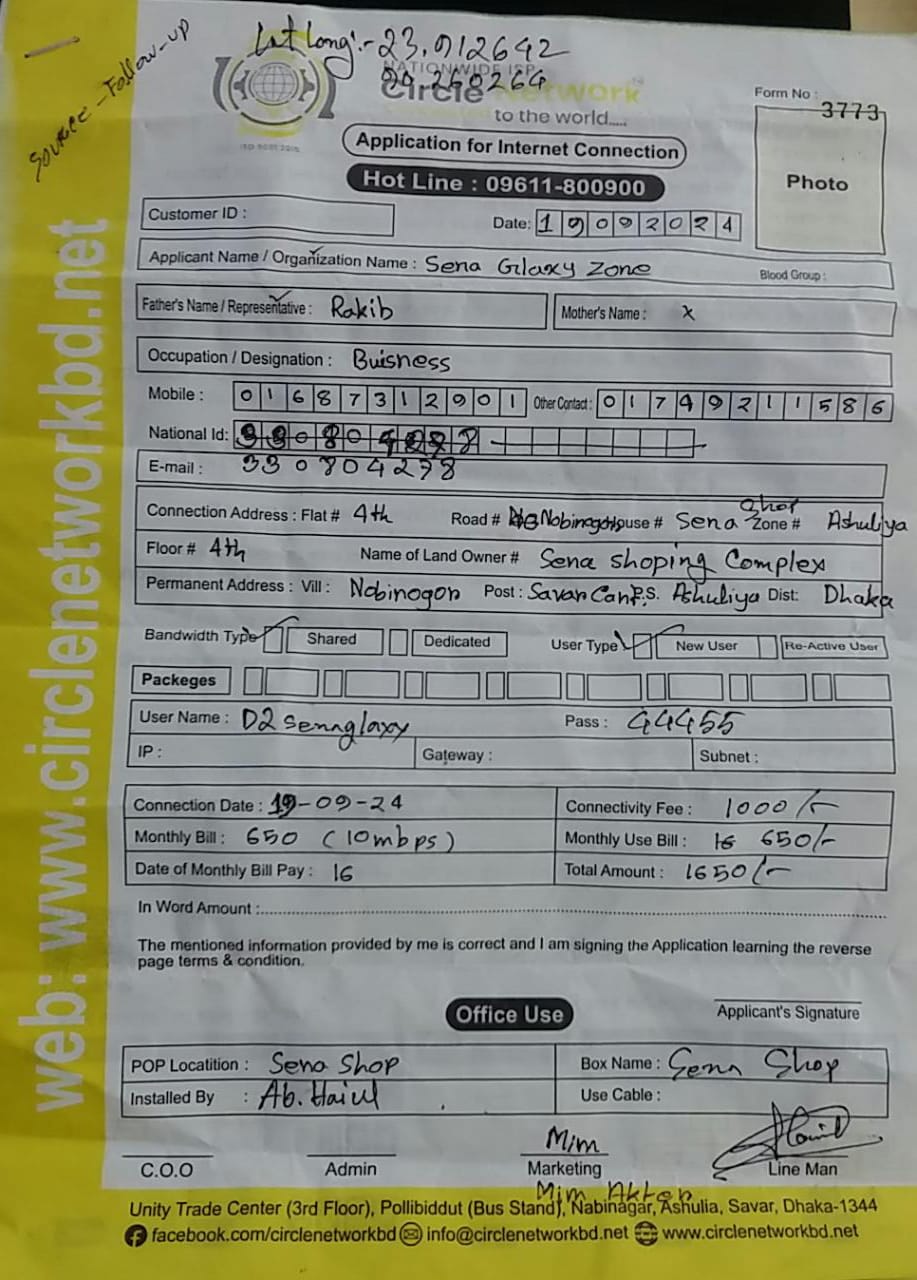 Source - Follow-up
Lat Long:- 23.912642
90.260264
NATIONWIDE ISP
Circle Network
to the world.....
ISO 9001:2015
Form No : 3773
Photo
Application for Internet Connection
Hot Line : 09611-800900
Customer ID :
Date: 19092024
Applicant Name / Organization Name : Sena Gilaxy Zone
Blood Group :
Father's Name / Representative : Rakib
Mother's Name : x
Occupation / Designation : Buisness
Mobile : 01687312901 Other Contact : 01749211586
National Id:
330804278
E-mail :
Connection Address : Flat # 4th Road # Nobinogor House # Sena Shop Zone # Ashuliya
Floor # 4th Name of Land Owner # Sena shoping Complex
Permanent Address : Vill : Nobinogor Post : Savar Cant P.S. Ashuliya Dist: Dhaka
Bandwidth Type Shared Dedicated User Type New User Re-Active User
Packeges
User Name : D2 senaglaxy Pass : 44455
IP : Gateway : Subnet :
Connection Date : 19-09-24 Connectivity Fee : 1000/-
Monthly Bill : 650 (10mbps) Monthly Use Bill : 650/-
Date of Monthly Bill Pay : 16 Total Amount : 1650/-
In Word Amount :
The mentioned information provided by me is correct and I am signing the Application learning the reverse
page terms & condition.
Applicant's Signature
Office Use
POP Locatition : Sena Shop Box Name : Sena Shop
Installed By : Ab. Haiul Use Cable :
Mim
C.O.O Admin Marketing Line Man
Mim Akter
Unity Trade Center (3rd Floor), Pollibiddut (Bus Stand), Nabinagar, Ashulia, Savar, Dhaka-1344
facebook.com/circlenetworkbd info@circlenetworkbd.net www.circlenetworkbd.net
web: www.circlenetworkbd.net